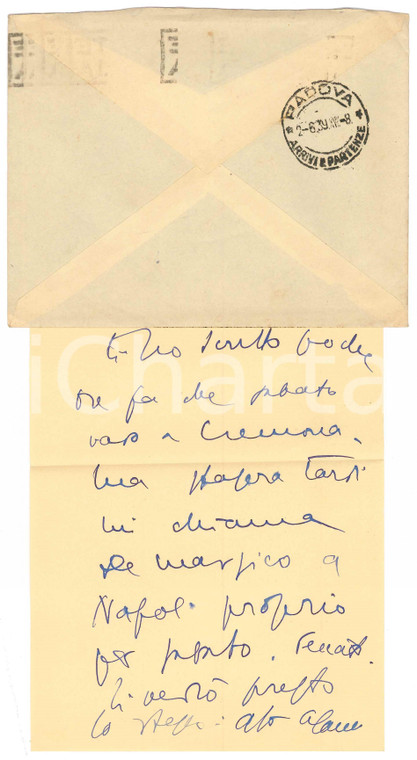 PADOVA
2-6.39.XVII-8
ARRIVI E PARTENZE
Ti ho scritto poche
ore fa che sabato
vado a Cremona.
Ma stasera tardi
mi chiama
De Marsico a
Napoli proprio
per sabato.
Ti vedrò presto
lo stesso.